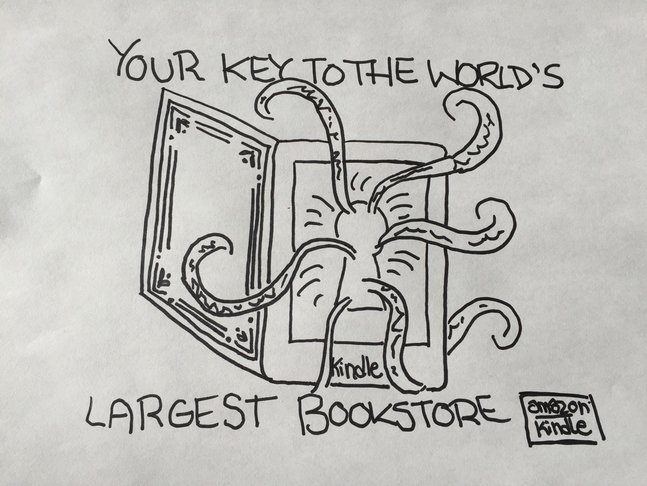 YOUR KEY TO THE WORLD'S
kindle
LARGEST BOOKSTORE
amazon
kindle